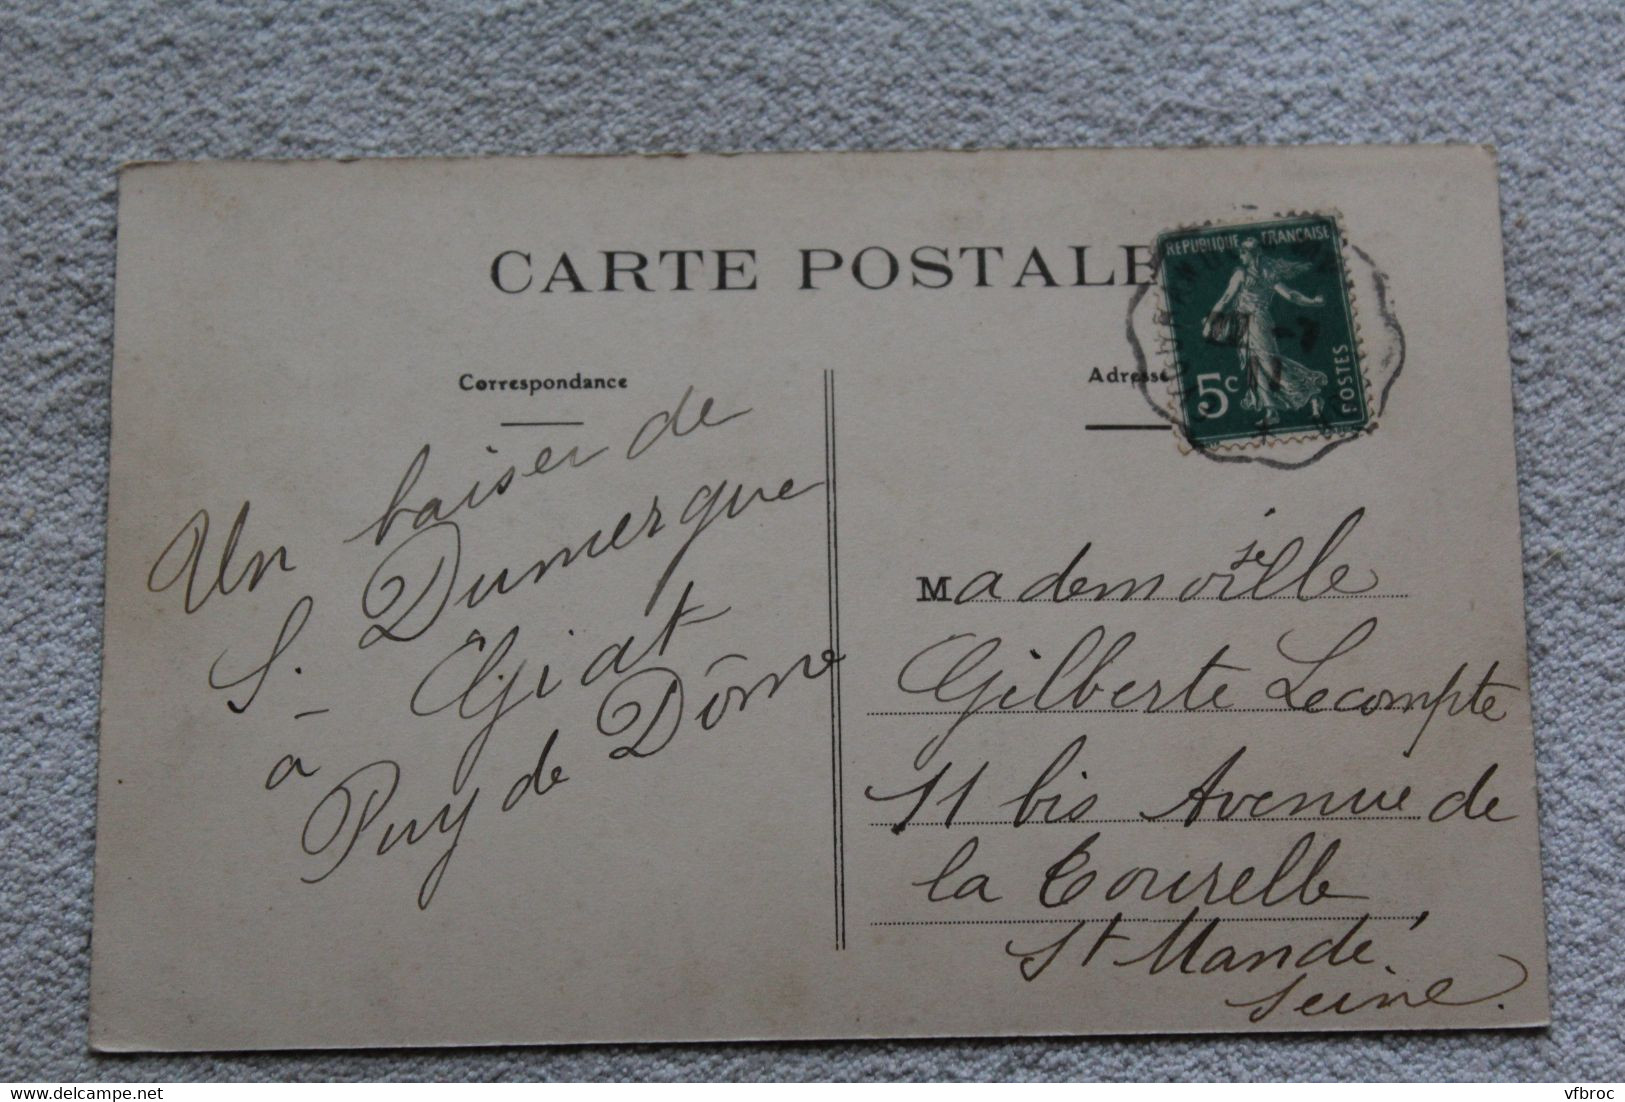 CARTE POSTALE
Correspondance
Adresse
REPUBLIQUE FRANÇAISE
5c
POSTES
Un baiser de
S. Dumergue
à Giat
Puy de Dôme
Mademoiselle
Gilberte Lecompte
11 bis Avenue de
la Tourelle
St Mandé.
Seine.
www.delcampe.net
vfbroc